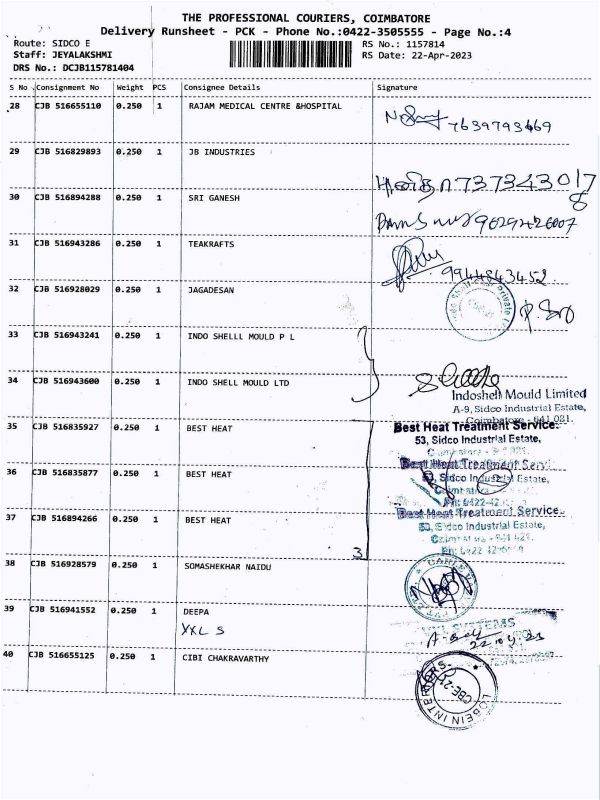 THE PROFESSIONAL COURIERS, COIMBATORE
Delivery Runsheet - PCK - Phone No.:0422-3505555 - Page No.:4
Route: SIDCO E
Staff: JEYALAKSHMI
DRS No.: DCJB115781404
RS No.: 1157814
RS Date: 22-Apr-2023
S No Consignment No Weight PCS Consignee Details Signature
28 CJB 516655110 0.250 1 RAJAM MEDICAL CENTRE &HOSPITAL
7639793669
29 CJB 516829893 0.250 1 JB INDUSTRIES
737343017
8
30 CJB 516894288 0.250 1 SRI GANESH
9629426007
31 CJB 516943286 0.250 1 TEAKRAFTS
9944843452
32 CJB 516928029 0.250 1 JAGADESAN
33 CJB 516943241 0.250 1 INDO SHELLL MOULD P L
34 CJB 516943600 0.250 1 INDO SHELL MOULD LTD
Indoshell Mould Limited
A-9, Sidco Industrial Estate,
Coimbatore - 641 021.
35 CJB 516835927 0.250 1 BEST HEAT
Best Heat Treatment Service.
53, Sidco Industrial Estate,
36 CJB 516835877 0.250 1 BEST HEAT
Best Heat Treatment Servi
53, Sidco Industrial Estate,
37 CJB 516894266 0.250 1 BEST HEAT
Best Heat Treatment Service.
53, Sidco Industrial Estate,
3
38 CJB 516928579 0.250 1 SOMASHEKHAR NAIDU
39 CJB 516941552 0.250 1 DEEPA
YXL S
SYSTEMS
40 CJB 516655125 0.250 1 CIBI CHAKRAVARTHY
CBE-21